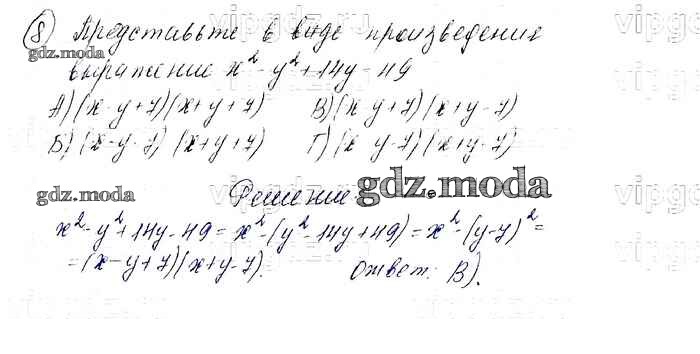 8) Представьте в виде произведения
gdz.moda
выражение x² - y² + 14y - 49
А) (x - y + 7)(x + y + 7)    В) (x - y + 7)(x + y - 7)
Б) (x - y - 7)(x + y + 7)    Г) (x - y - 7)(x + y - 7)
gdz.moda Решение gdz.moda
x² - y² + 14y - 49 = x² - (y² - 14y + 49) = x² - (y - 7)² =
= (x - y + 7)(x + y - 7).    Ответ: В).
gdz.moda